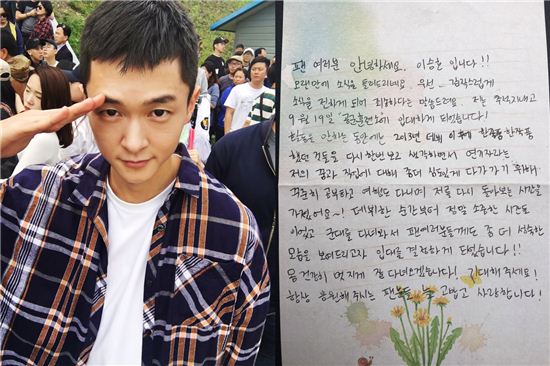 팬 여러분 안녕하세요.. 입니다!!
오랜만에 소식을 들려드리네요. 우선.. 갑작스럽게
소식을 전하게 되어 죄송하다는 말씀드려요. 저는 추석지내고
9월 19일 입대하게 되었습니다!
활동을 안하는 동안에는 2013년 데뷔 이후에 한작품한작품
했던 것들을 다시한번 보고 생각하면서 연기자라는
저의 꿈과 직업에 대해 좀더 심도있게 다가가기 위해
꾸준히 공부하고 여행도 다니며 저를 다시 돌아보는 시간을
가졌어요~! 데뷔한 순간부터 정말 소중한 시간들
이었고 군대를 다녀와서 팬여러분들께도 좀 더 성숙한
모습 보여드리고자 입대를 결정하게 되었습니다!!
몸 건강히 멋지게 잘 다녀오겠습니다! 기대해주세요!
항상 응원해 주시는 팬분들 고맙고 사랑합니다!